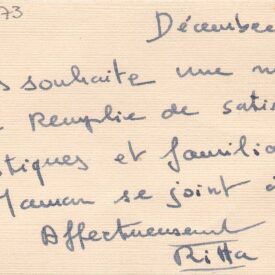 73
Décembre
souhaite une
Remplie de satis
tiques et familia
Maman se joint à
Affectueusement
Ritta